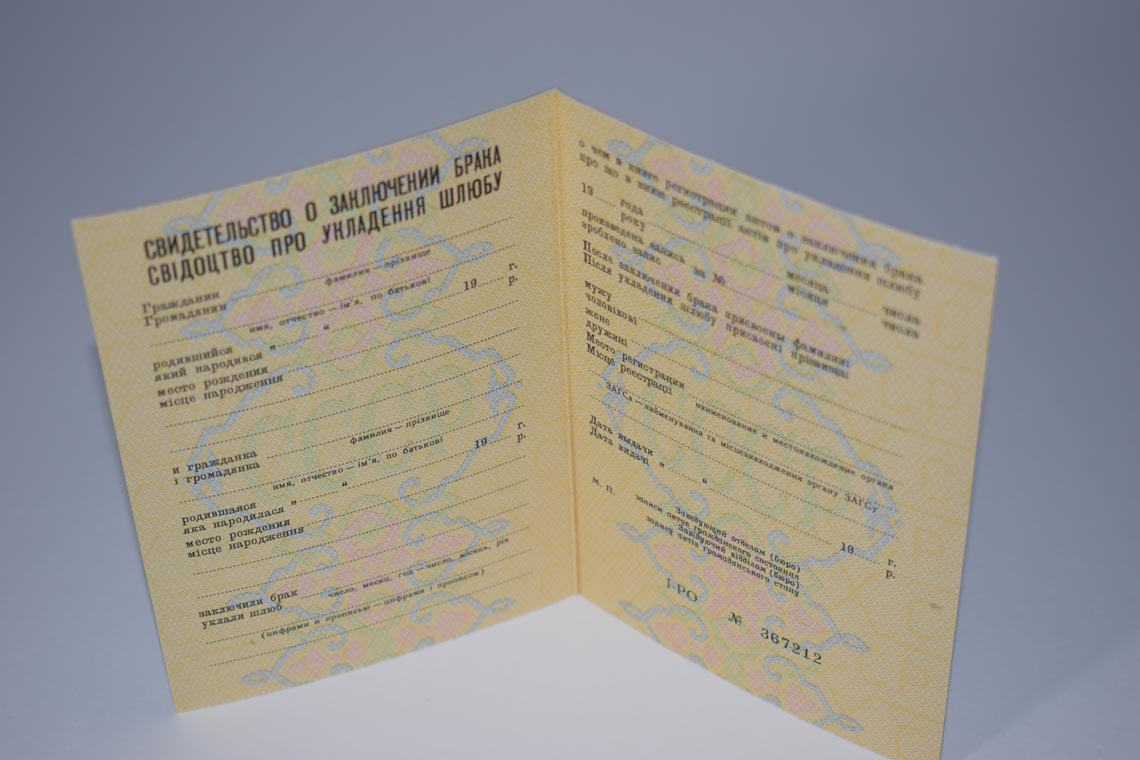 СВИДЕТЕЛЬСТВО О ЗАКЛЮЧЕНИИ БРАКА
СВІДОЦТВО ПРО УКЛАДЕННЯ ШЛЮБУ
Гражданин
Громадянин
фамилия — прізвище
имя, отчество — ім'я, по батькові
родившийся „ “ 19 г.
який народився р.
место рождения
місце народження
и гражданка
і громадянка
фамилия — прізвище
имя, отчество — ім'я, по батькові
родившаяся „ “ 19 г.
яка народилася р.
место рождения
місце народження
заключили брак
уклали шлюб
число, месяц, год — число, місяць, рік
(цифрами и прописью — цифрами і прописом)
о чем в книге регистрации актов о заключении брака
про що в книзі реєстрації актів про укладення шлюбу
19 года месяца числа
року місяця числа
произведена запись за №
зроблено запис
После заключения брака присвоены фамилии:
Після укладення шлюбу присвоєні прізвища:
мужу
чоловікові
жене
дружині
Место регистрации
Місце реєстрації
наименование и местонахождение органа
ЗАГСа — найменування та місцезнаходження органу ЗАГСу
Дата выдачи „ “ 19 г.
Дата видачі р.
М. П.
Заведующий отделом (бюро)
записи актов гражданского состояния
Завідуючий відділом (бюро)
запису актів громадянського стану
I-РО № 367212